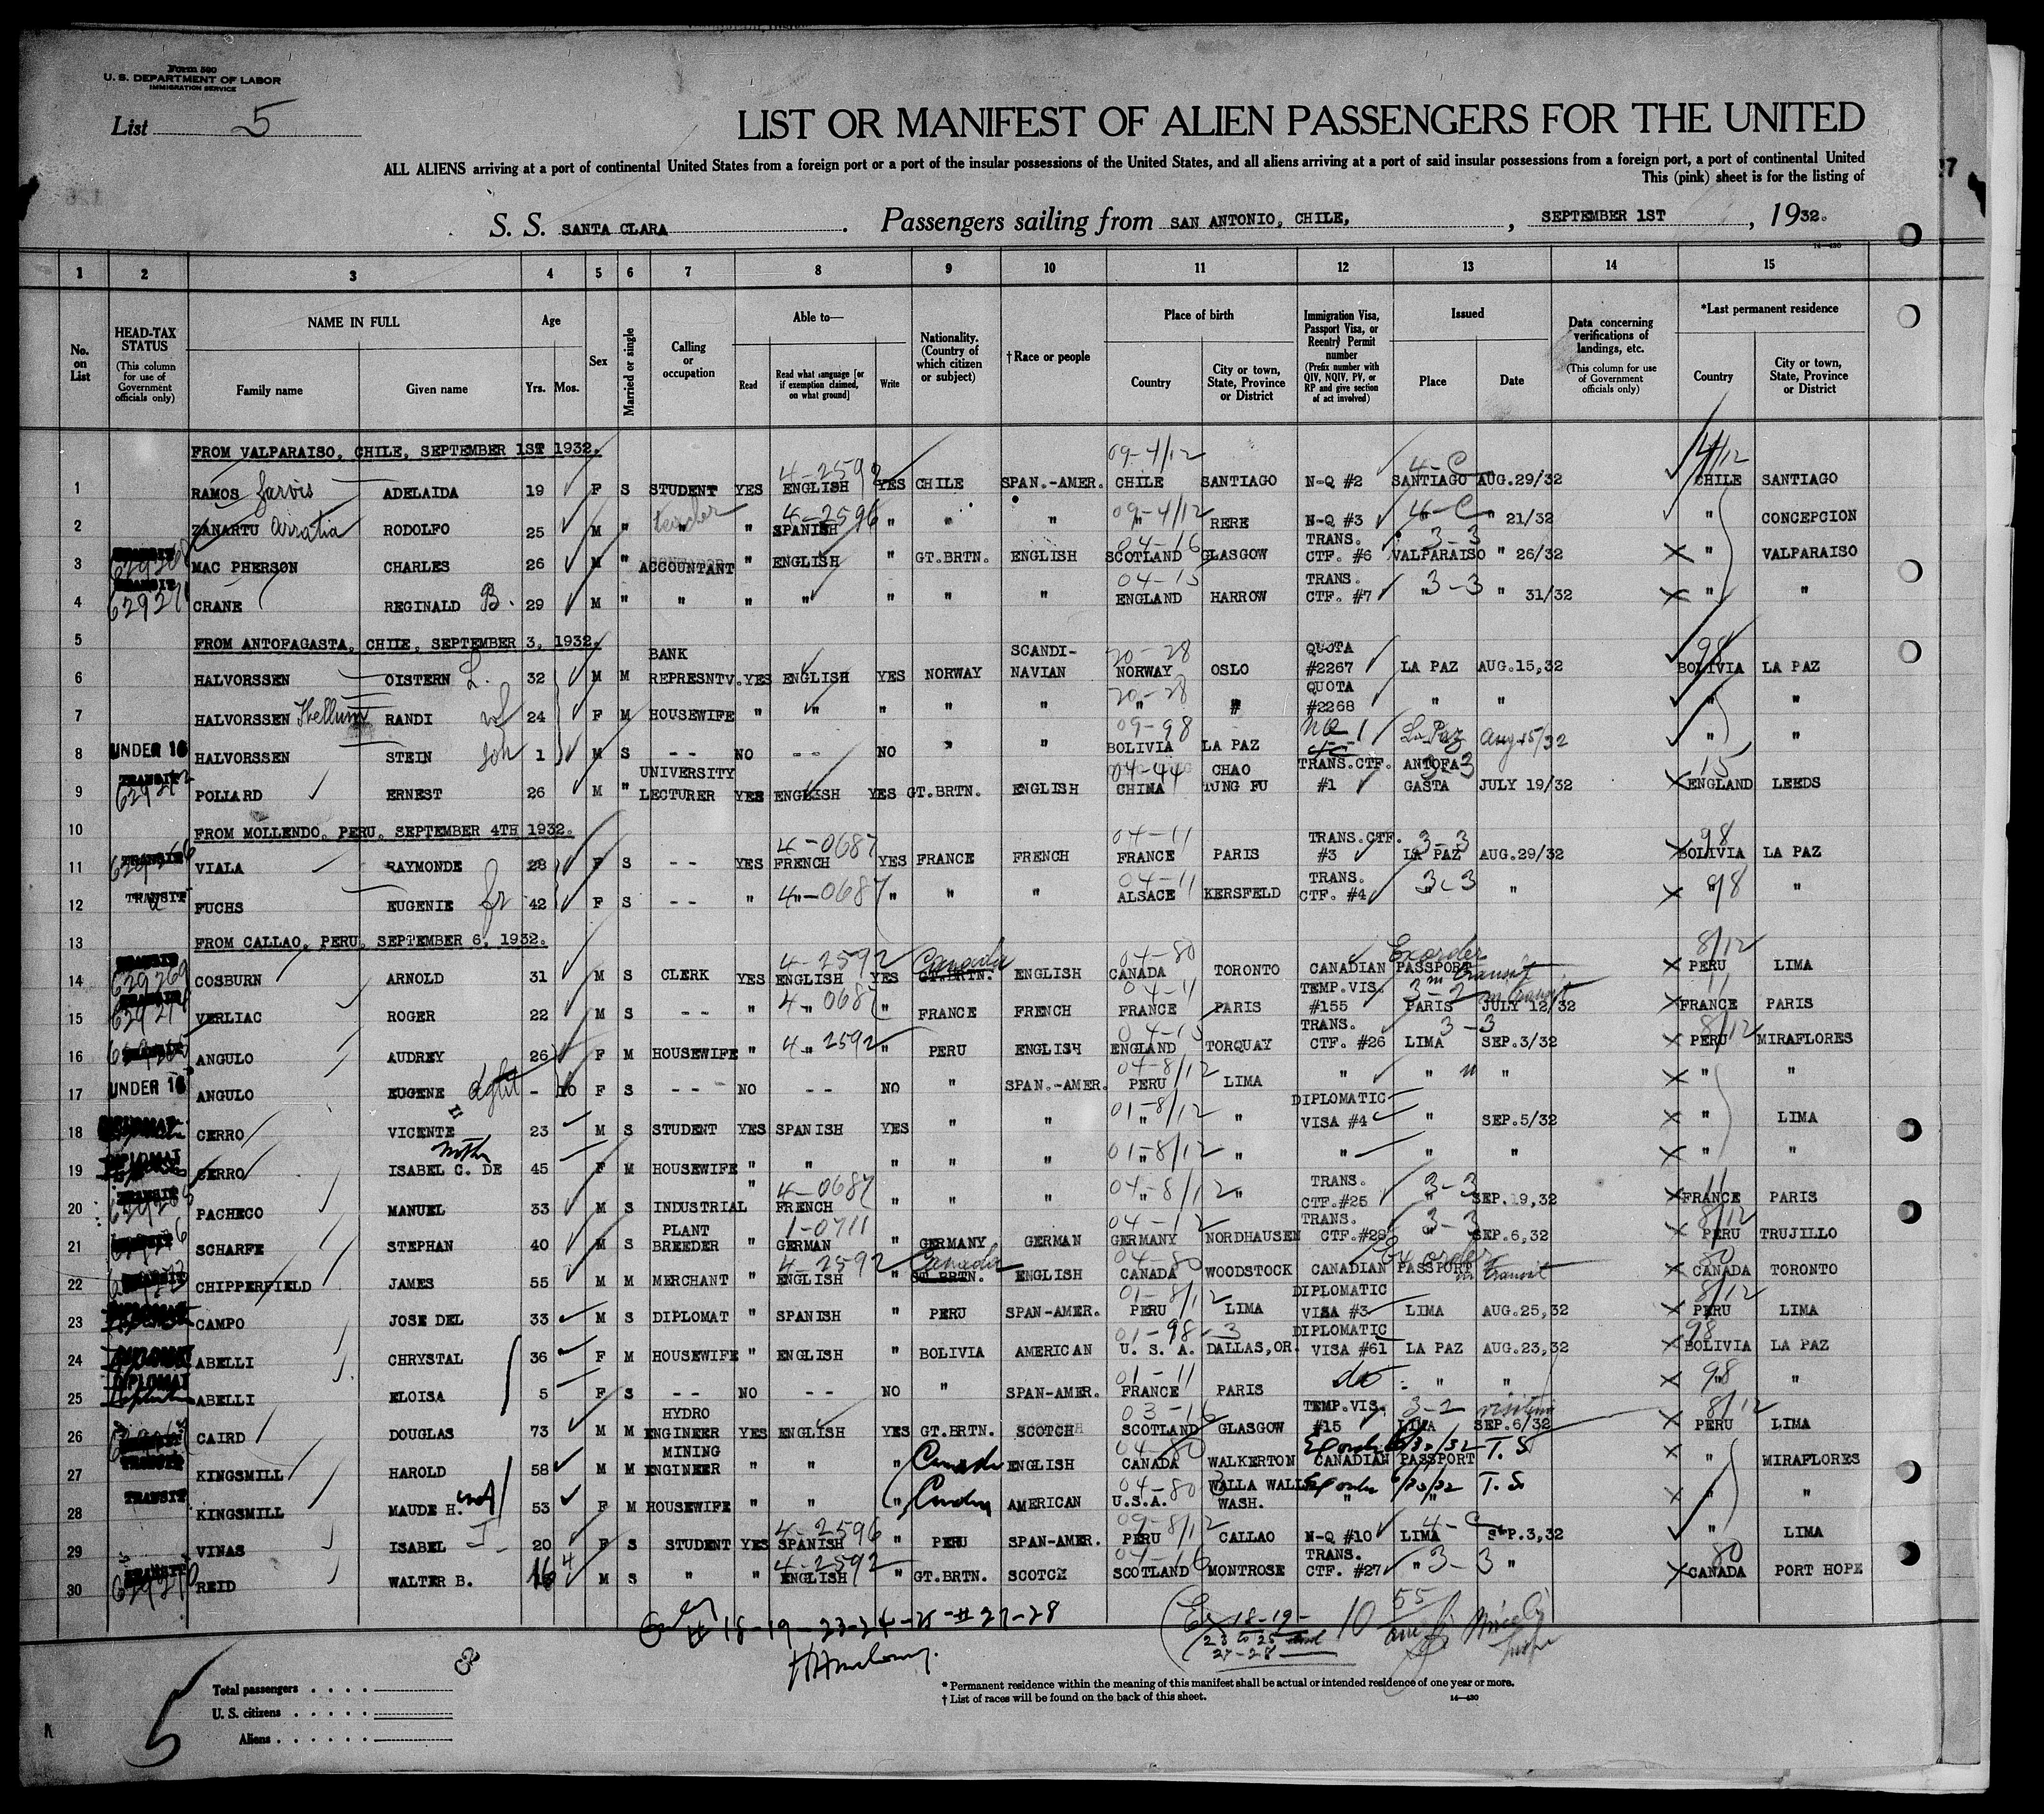 Form 500
U. S. DEPARTMENT OF LABOR
IMMIGRATION SERVICE
List 5
LIST OR MANIFEST OF ALIEN PASSENGERS FOR THE UNITED
ALL ALIENS arriving at a port of continental United States from a foreign port or a port of the insular possessions of the United States, and all aliens arriving at a port of said insular possessions from a foreign port, a port of continental United
This (pink) sheet is for the listing of
S. S. SANTA CLARA. Passengers sailing from SAN ANTONIO, CHILE, , SEPTEMBER 1ST , 1932.
1 2 3 4 5 6 7 8 9 10 11 12 13 14 15
No. on List
HEAD-TAX STATUS (This column for use of Government officials only)
NAME IN FULL Family name Given name
Age Yrs. Mos.
Sex
Married or single
Calling or occupation
Able to— Read Read what language [or if exemption claimed, on what ground] Write
Nationality. (Country of which citizen or subject)
†Race or people
Place of birth Country City or town, State, Province or District
Immigration Visa, Passport Visa, or Reentry Permit number (Prefix number with QIV, NQIV, PV, or RP and give section of act involved)
Issued Place Date
Data concerning verifications of landings, etc. (This column for use of Government officials only)
*Last permanent residence Country City or town, State, Province or District
FROM VALPARAISO, CHILE, SEPTEMBER 1ST 1932. 09-4/12 4/12
1 RAMOS Jarvis ADELAIDA 19 F S STUDENT YES 4-2592 ENGLISH YES CHILE SPAN.-AMER. CHILE SANTIAGO N-Q #2 4-C SANTIAGO AUG.29/32 CHILE SANTIAGO
2 ZANARTU Arratia RODOLFO 25 M " teacher " " 4-2596 SPANISH " " " 09-4/12 " RERE N-Q #3 4-C " 21/32 " CONCEPCION
3 TRANSIT MAC PHERSON CHARLES 26 M " ACCOUNTANT " ENGLISH " GT.BRTN. ENGLISH 04-16 SCOTLAND GLASGOW TRANS. CTF. #6 3-3 VALPARAISO " 26/32 " VALPARAISO
4 TRANSIT 629271 CRANE REGINALD B. 29 M " " " " " " " 04-15 ENGLAND HARROW TRANS. CTF. #7 3-3 " " 31/32 " "
5 FROM ANTOFAGASTA, CHILE, SEPTEMBER 3, 1932.
6 HALVORSSEN OISTERN L. 32 M M BANK REPRESNTV. YES ENGLISH YES NORWAY SCANDI-NAVIAN 20-28 NORWAY OSLO QUOTA #2267 LA PAZ AUG.15,32 98 BOLIVIA LA PAZ
7 HALVORSSEN RANDI wf 24 F M HOUSEWIFE " " " " " 20-28 " " QUOTA #2268 " " " "
8 UNDER 16 HALVORSSEN STEIN son 1 M S - - NO - - NO " " 09-98 BOLIVIA LA PAZ NQ 1 La Paz Aug 15/32 " "
9 TRANSIT POLLARD ERNEST 26 M " UNIVERSITY LECTURER YES ENGLISH YES GT.BRTN. ENGLISH 04-44 CHINA CHAO TUNG FU TRANS.CTF. #1 3-3 ANTOFAGASTA JULY 19/32 15 ENGLAND LEEDS
10 FROM MOLLENDO, PERU, SEPTEMBER 4TH 1932.
11 TRANSIT VIALA RAYMONDE 28 F S - - YES 4-0687 FRENCH YES FRANCE FRENCH 04-11 FRANCE PARIS TRANS.CTF. #3 3-3 LA PAZ AUG.29/32 98 BOLIVIA LA PAZ
12 TRANSIT FUCHS EUGENIE fr 42 F S - - " 4-0687 " " " " 04-11 ALSACE KERSFELD TRANS. CTF. #4 3-3 " " 98 " "
13 FROM CALLAO, PERU, SEPTEMBER 6, 1932.
14 TRANSIT 629269 COSBURN ARNOLD 31 M S CLERK YES 4-2592 ENGLISH YES Canada GT.BRTN. ENGLISH 04-80 CANADA TORONTO CANADIAN PASSPORT Ex order in transit 8/12 PERU LIMA
15 TRANSIT VERLIAC ROGER 22 M S - - " 4-0687 " " FRANCE FRENCH 04-11 FRANCE PARIS TEMP.VIS. #155 3-2 in transit PARIS JULY 12/32 11 FRANCE PARIS
16 ANGULO AUDREY 26 F M HOUSEWIFE " 4-2592 " " PERU ENGLISH 04-15 ENGLAND TORQUAY TRANS. CTF. #26 3-3 LIMA SEP.3/32 8/12 PERU MIRAFLORES
17 UNDER 16 ANGULO EUGENE dght - 10 F S - - NO - - NO " SPAN.-AMER. 04-8/12 PERU LIMA " " " " "
18 DIPLOMAT CERRO VICENTE 23 M S STUDENT YES SPANISH YES " " 01-8/12 " " DIPLOMATIC VISA #4 " SEP.5/32 " LIMA
19 DIPLOMAT CERRO ISABEL C. DE moth 45 F M HOUSEWIFE " " " " " 01-8/12 " " " " " " "
20 TRANSIT PACHECO MANUEL 33 M S INDUSTRIAL " 4-0687 FRENCH " " " 04-8/12 " " TRANS. CTF.#25 3-3 " SEP.19,32 11 FRANCE PARIS
21 SCHARFE STEPHAN 40 M S PLANT BREEDER " 1-0711 GERMAN " GERMANY GERMAN 04-12 GERMANY NORDHAUSEN TRANS. CTF.#28 3-3 " SEP.6,32 8/12 PERU TRUJILLO
22 CHIPPERFIELD JAMES 55 M M MERCHANT " 4-2592 ENGLISH " Canada GT.BRTN. ENGLISH 04-80 CANADA WOODSTOCK CANADIAN PASSPORT Ex order in transit 80 CANADA TORONTO
23 DIPLOMAT CAMPO JOSE DEL 33 M S DIPLOMAT " SPANISH " PERU SPAN-AMER. 01-8/12 PERU LIMA DIPLOMATIC VISA #3 LIMA AUG.25,32 8/12 PERU LIMA
24 DIPLOMAT ABELLI CHRYSTAL 36 F M HOUSEWIFE " ENGLISH " BOLIVIA AMERICAN 01-98-3 U. S. A. DALLAS, OR. DIPLOMATIC VISA #61 LA PAZ AUG.23,32 98 BOLIVIA LA PAZ
25 DIPLOMAT ABELLI ELOISA 5 F S - - NO - - NO " SPAN-AMER. 01-11 FRANCE PARIS do " " 98 " "
26 CAIRD DOUGLAS 73 M M HYDRO ENGINEER YES ENGLISH YES GT.BRTN. SCOTCH 03-16 SCOTLAND GLASGOW TEMP.VIS. #15 3-2 LIMA SEP.6/32 8/12 PERU LIMA
27 TRANSIT KINGSMILL HAROLD 58 M M MINING ENGINEER " " " Canada ENGLISH 04-80 CANADA WALKERTON Ex order CANADIAN PASSPORT T.S. " MIRAFLORES
28 TRANSIT KINGSMILL MAUDE H. wf 53 F M HOUSEWIFE " " " Canada AMERICAN 04-80 3 U.S.A. WALLA WALLA WASH. Ex order " " T.S. " "
29 VINAS ISABEL I. 20 F S STUDENT YES 4-2596 SPANISH " PERU SPAN-AMER. 09-8/12 PERU CALLAO N-Q #10 4-C LIMA SEP.3,32 " LIMA
30 TRANSIT REID WALTER B. 16 4 M S " " 4-2592 ENGLISH " GT.BRTN. SCOTCH 04-16 SCOTLAND MONTROSE TRANS. CTF. #27 " 3-3 " 80 CANADA PORT HOPE
# 18-19-23-24-25-#27-28
Ex 18-19- 23 to 25 and 27-28 10 55
Total passengers
U. S. citizens
Aliens
5
* Permanent residence within the meaning of this manifest shall be actual or intended residence of one year or more.
† List of races will be found on the back of this sheet. 14—430